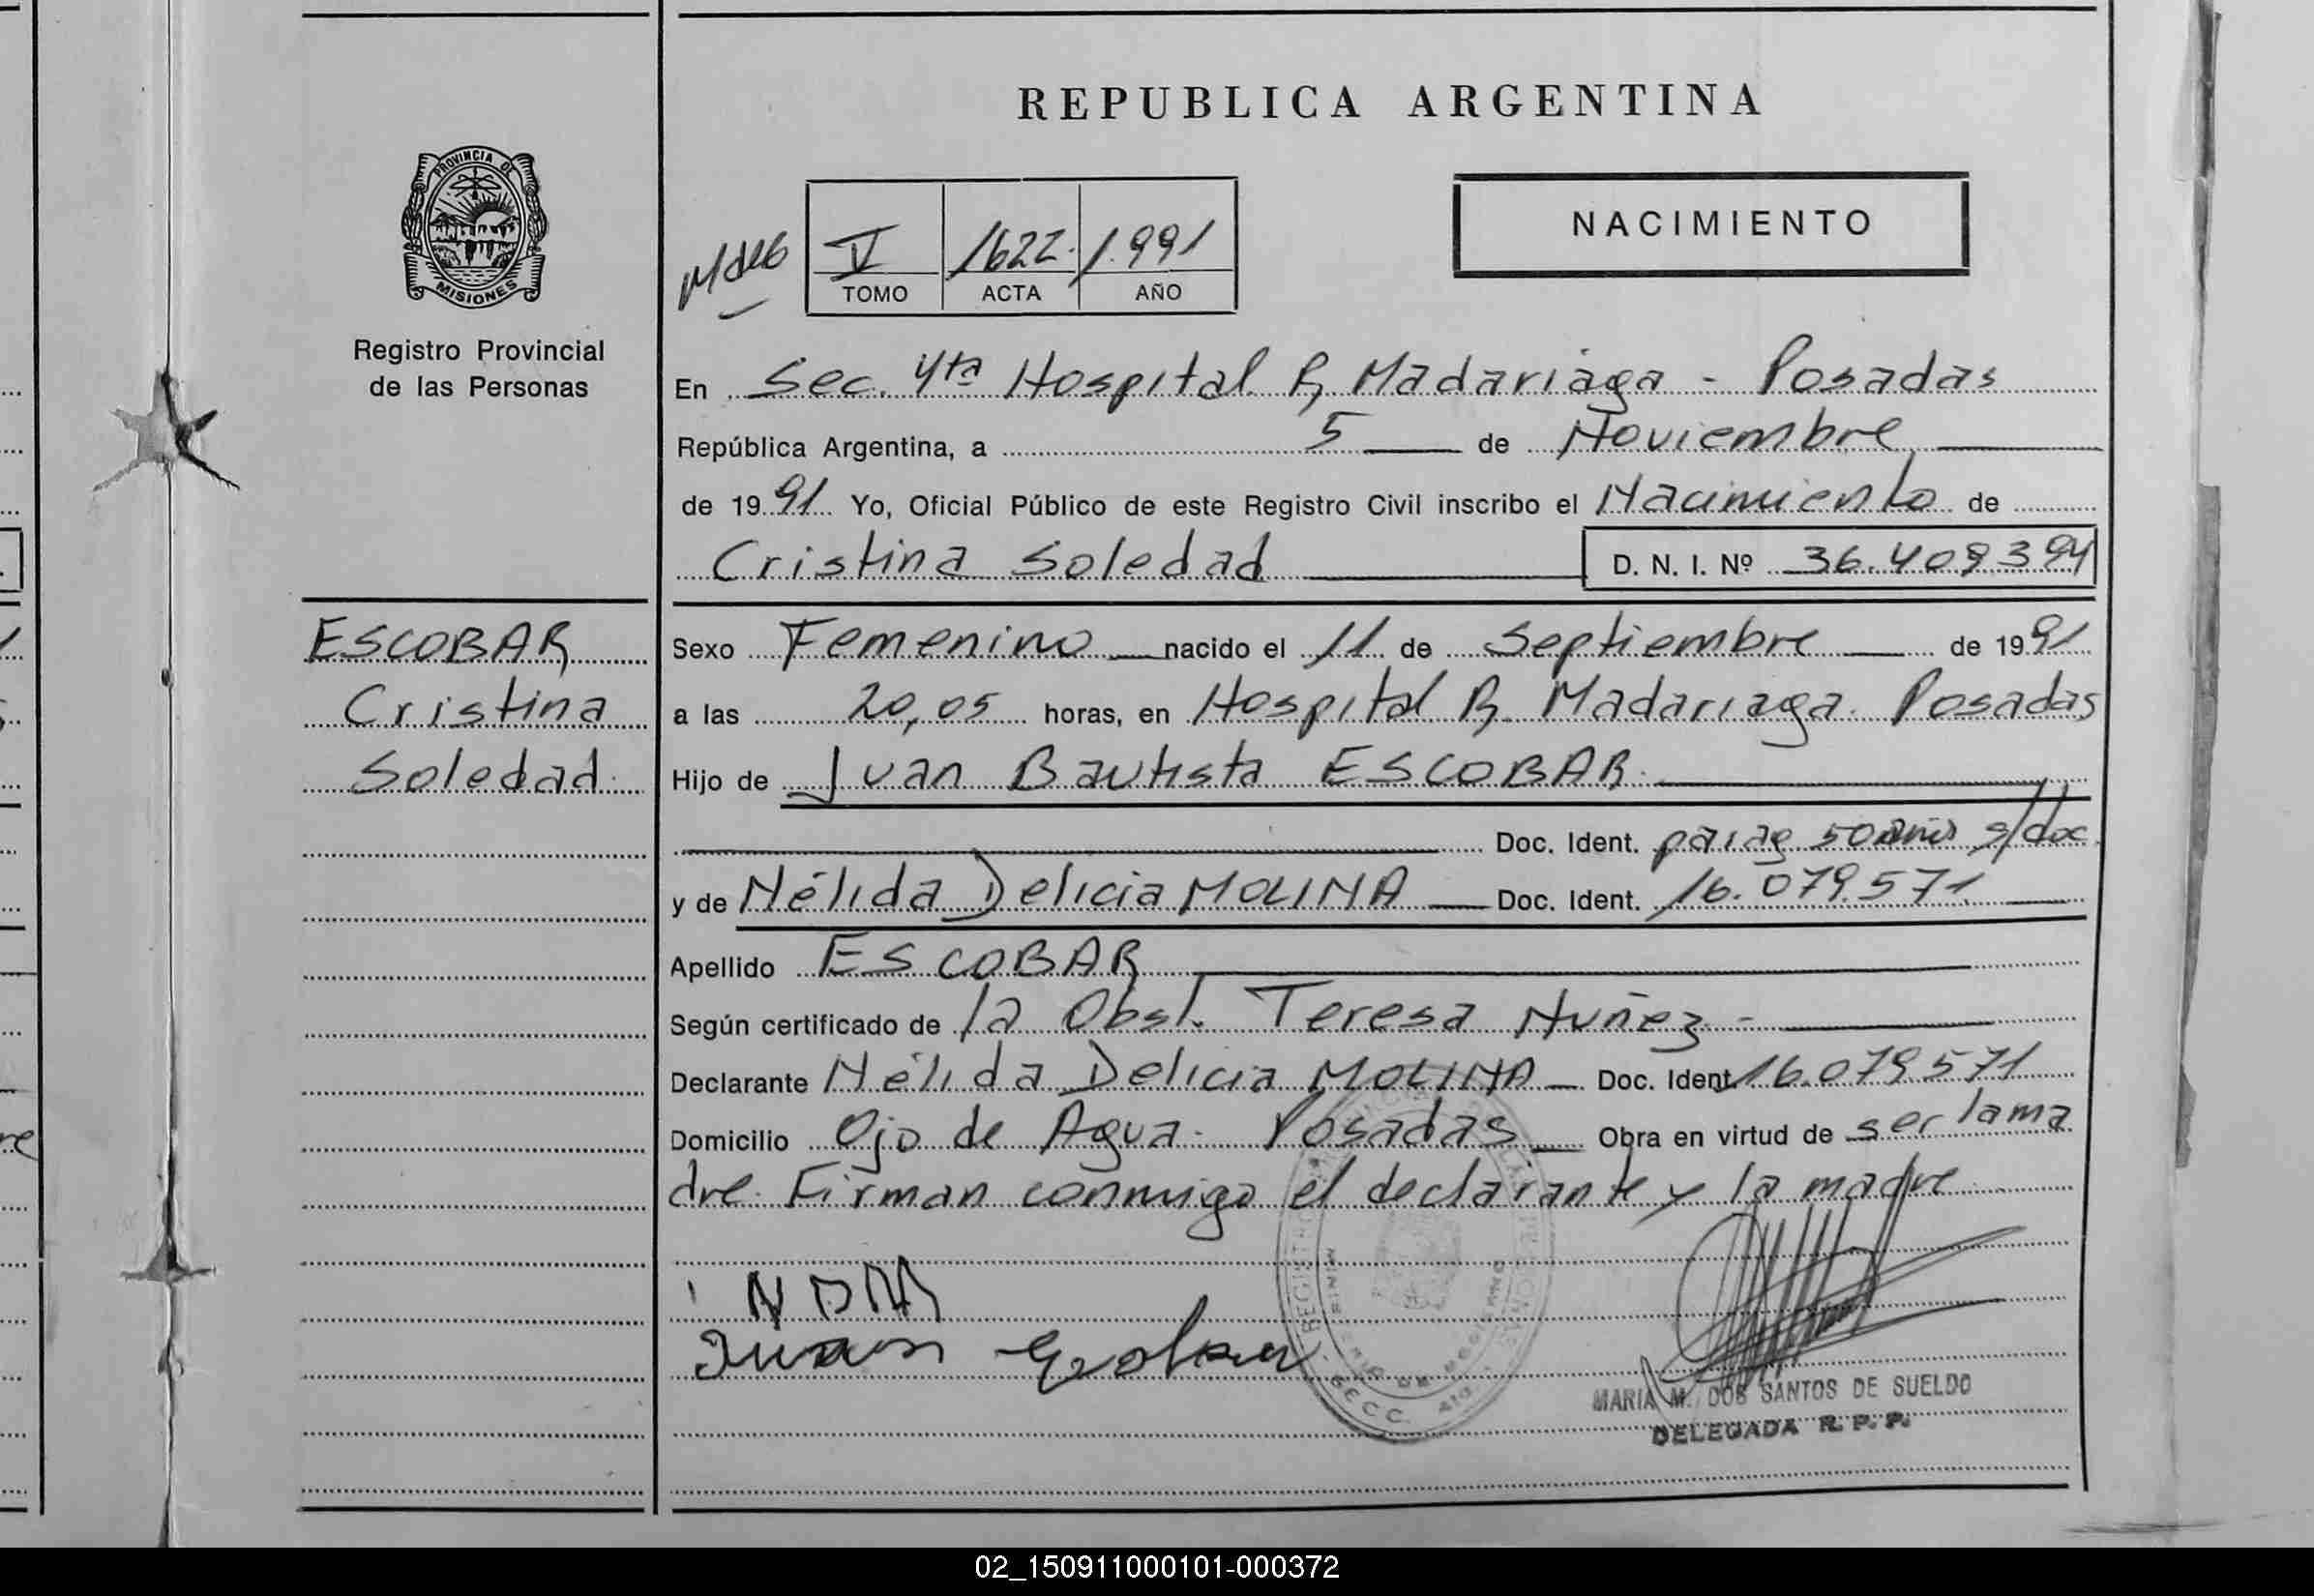 REPUBLICA ARGENTINA
PROVINCIA DE
MISIONES
Registro Provincial
de las Personas
V 1622. 1.991
TOMO ACTA AÑO
NACIMIENTO
En Sec. 4ta Hospital R, Madariaga - Posadas
República Argentina, a 5 de Noviembre
de 1991 Yo, Oficial Público de este Registro Civil inscribo el Nacimiento de
Cristina Soledad D. N. I. Nº 36.409394
ESCOBAR
Cristina
Soledad.
Sexo Femenino nacido el 11 de Septiembre de 1991
a las 20,05 horas, en Hospital R. Madariaga. Posadas
Hijo de Juan Bautista ESCOBAR.
Doc. Ident. parag 50 años s/doc.
y de Nélida Delicia MOLINA Doc. Ident. 16.079.571.
Apellido ESCOBAR
Según certificado de la Obst. Teresa Nuñez -
Declarante Nélida Delicia MOLINA Doc. Ident. 16.079571
Domicilio Ojo de Agua. Posadas Obra en virtud de ser la ma
dre. Firman conmigo el declarante y la madre
NDM
Juan Escobar
MARIA M. DOS SANTOS DE SUELDO
DELEGADA R. P. P.
02_150911000101-000372